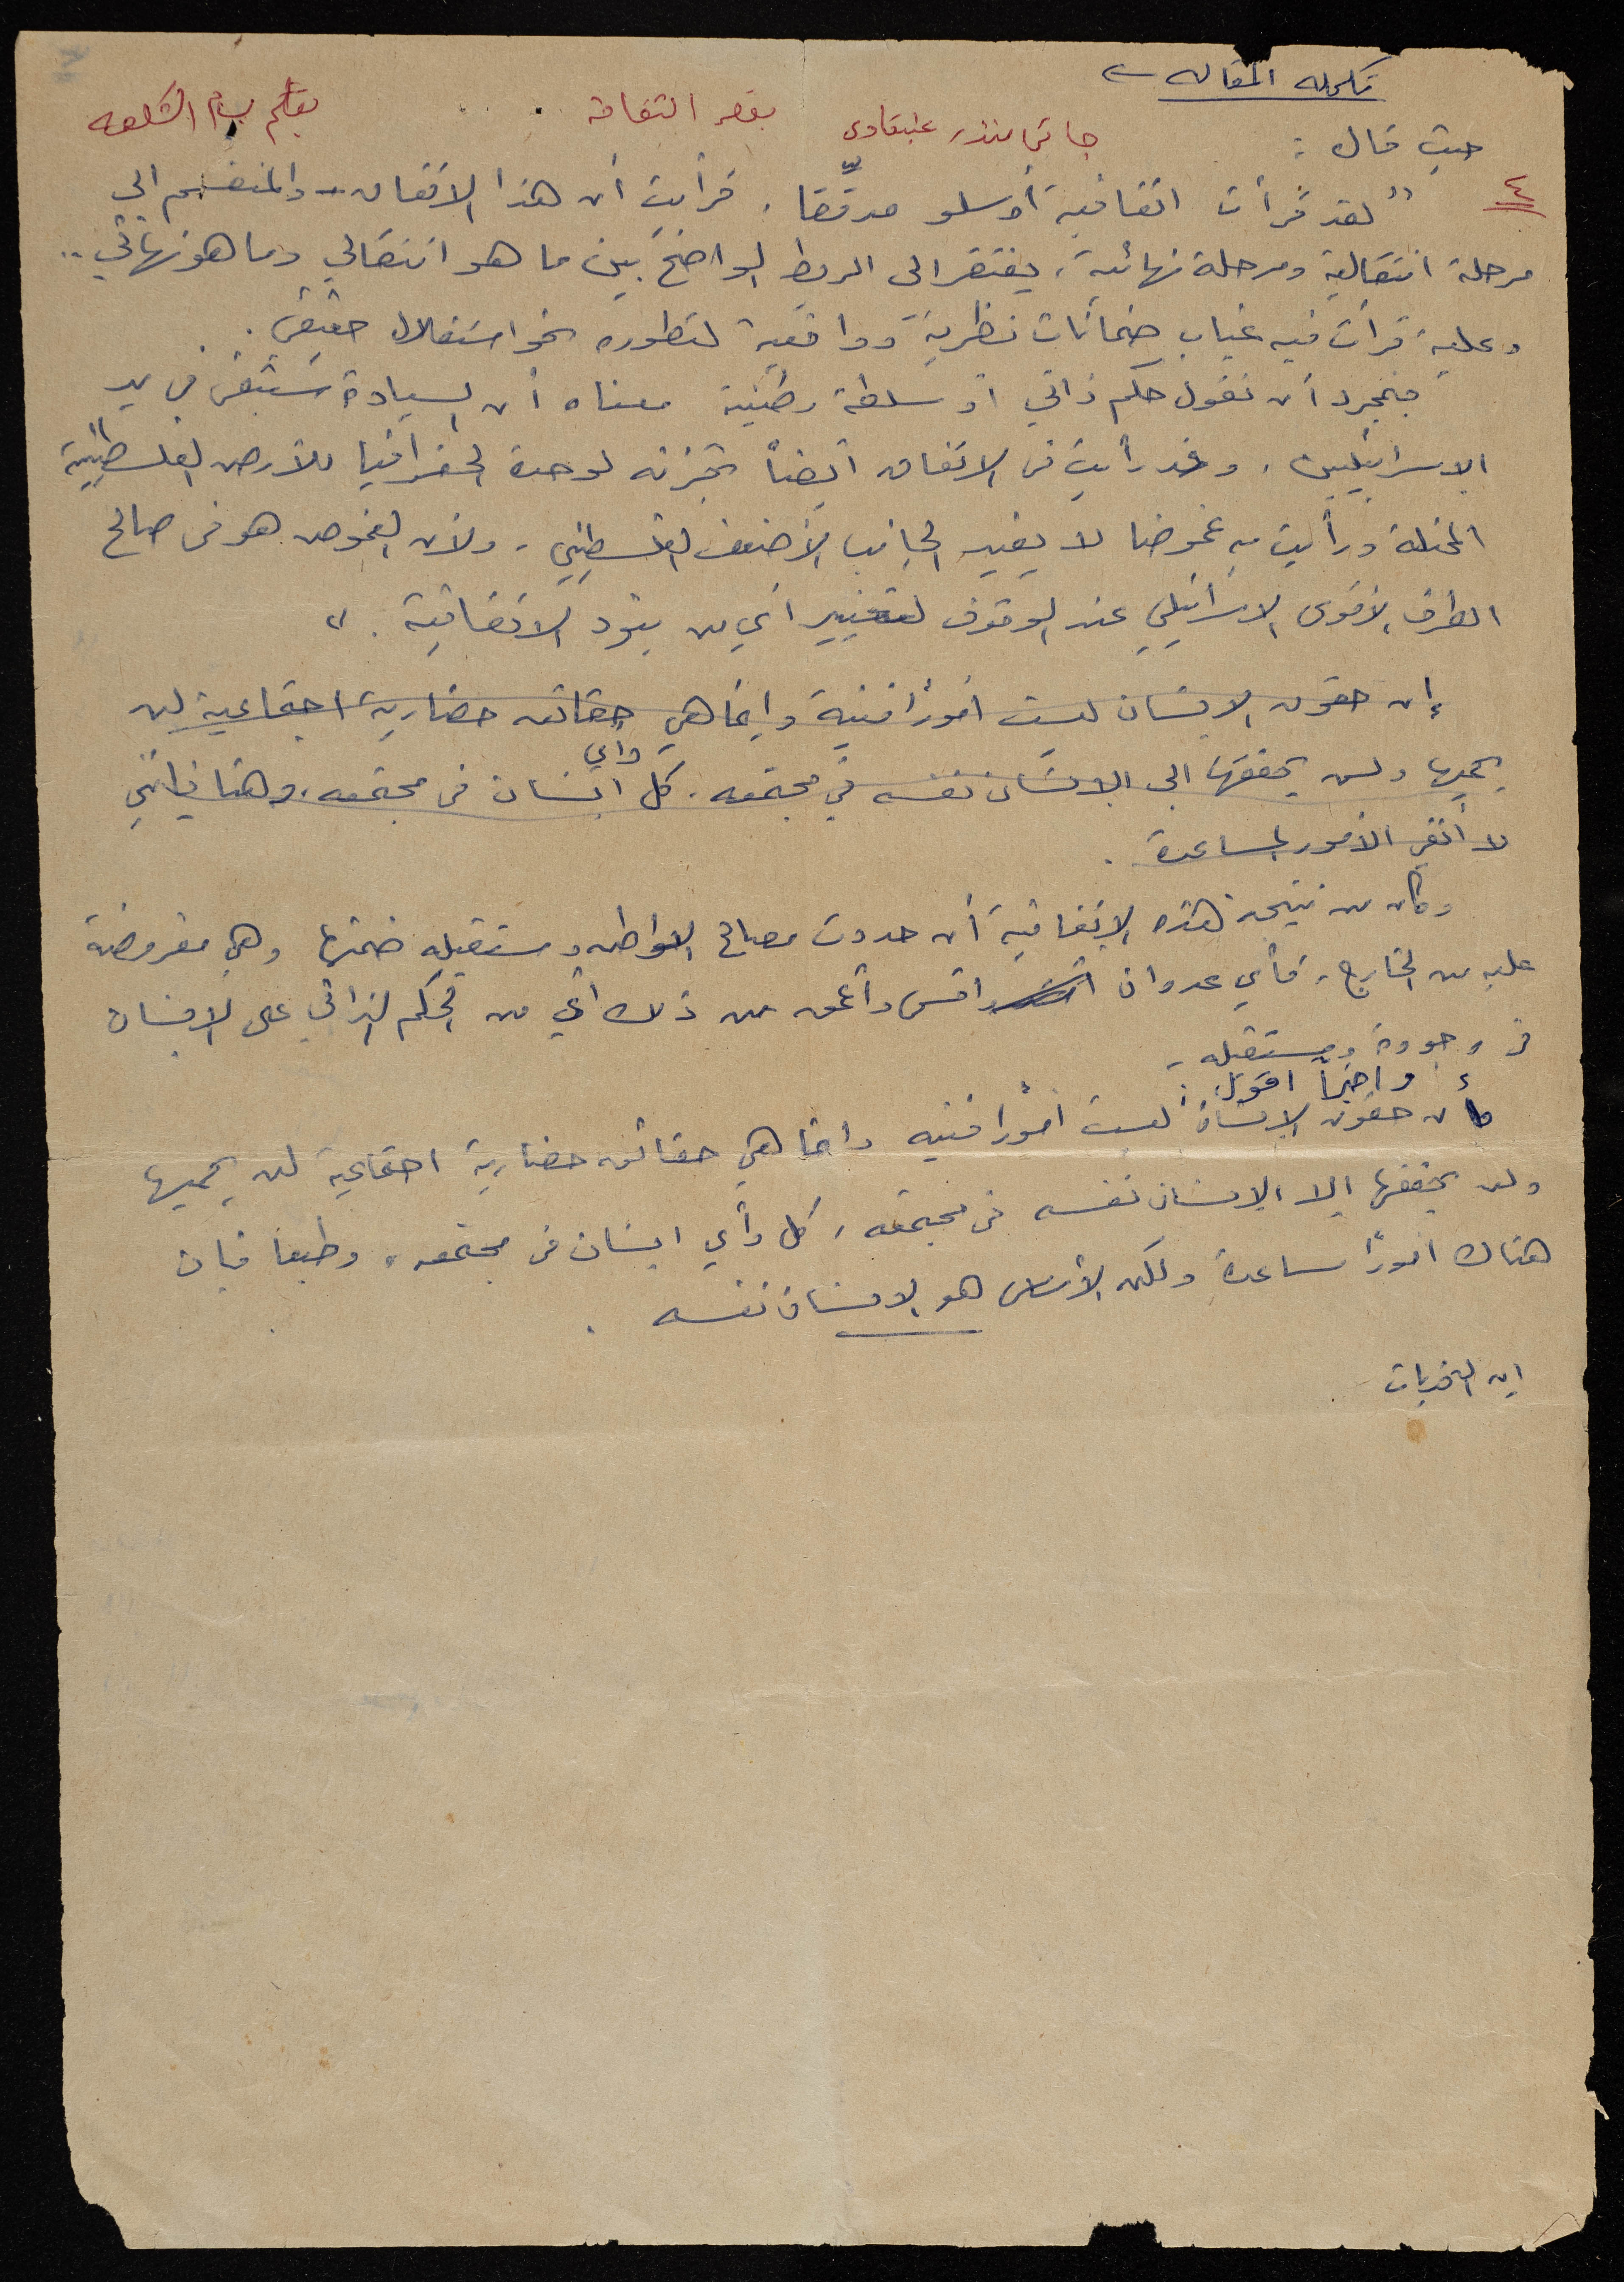 تكملة المقالة
جاتي منذر عنبتاوي بقصر الثقافة بقلم بسام الشكعه
حيث قال :
٤
" لقد قرأت اتفاقية أوسلو مدققا ، فرأيت أن هذا الاتفاق - والمنقسم الى
مرحلة انتقالية ومرحلة نهائية ، يفتقر الى الربط الواضح بين ما هو انتقالي وما هو نهائي ..
وعليه قرأت فيه غياب ضمانات نظرية وواقعية لتطوره نحو استقلال حقيقي .
فبمجرد أن نقول حكم ذاتي أو سلطة وطنية معناه أن السيادة ستبقى في يد
الاسرائيليين ، وقد رأيت في الاتفاق أيضاً تجزئه لوحدة الجغرافيا للأرض الفلسطينية
المحتلة ورأيت به غموضا لا يفيد الجانب الأضعف الفلسطيني ، ولأن الغموض هو في صالح
الطرف الأقوى الاسرائيلي عند الوقوف لتفسير أي من بنود الاتفاقية . "
إن حقوق الإنسان ليست أموراً فنية وإنما هي حقائق حضارية اجتماعية لن
يحميها ولن يحققها الى الإنسان نفسه في مجتمعه . كل وأي انسان في مجتمعه ، وهنا فإنني
لا أنفي الأمور المساعدة .
وكان من نتيجة هذه الاتفاقية أن حددت مصالح المواطن ومستقبله ضمنها وهي مفروضة
عليه من الخارج ، فأي عدوان أقسى وأعمق من ذلك أي من الحكم الذاتي على الإنسان
في وجوده ومستقبله .
وأخيراً أقول :
إن حقوق الإنسان ليست أموراً فنيه وإنما هي حقائق حضارية اجتماعية لن يحميها
ولن يحققها إلا الإنسان نفسه في مجتمعه ، كل وأي انسان في مجتمعه ، وطبعا فإن
هناك أموراً مساعدة ولكن الأساس هو الإنسان نفسه .
إن التحديات